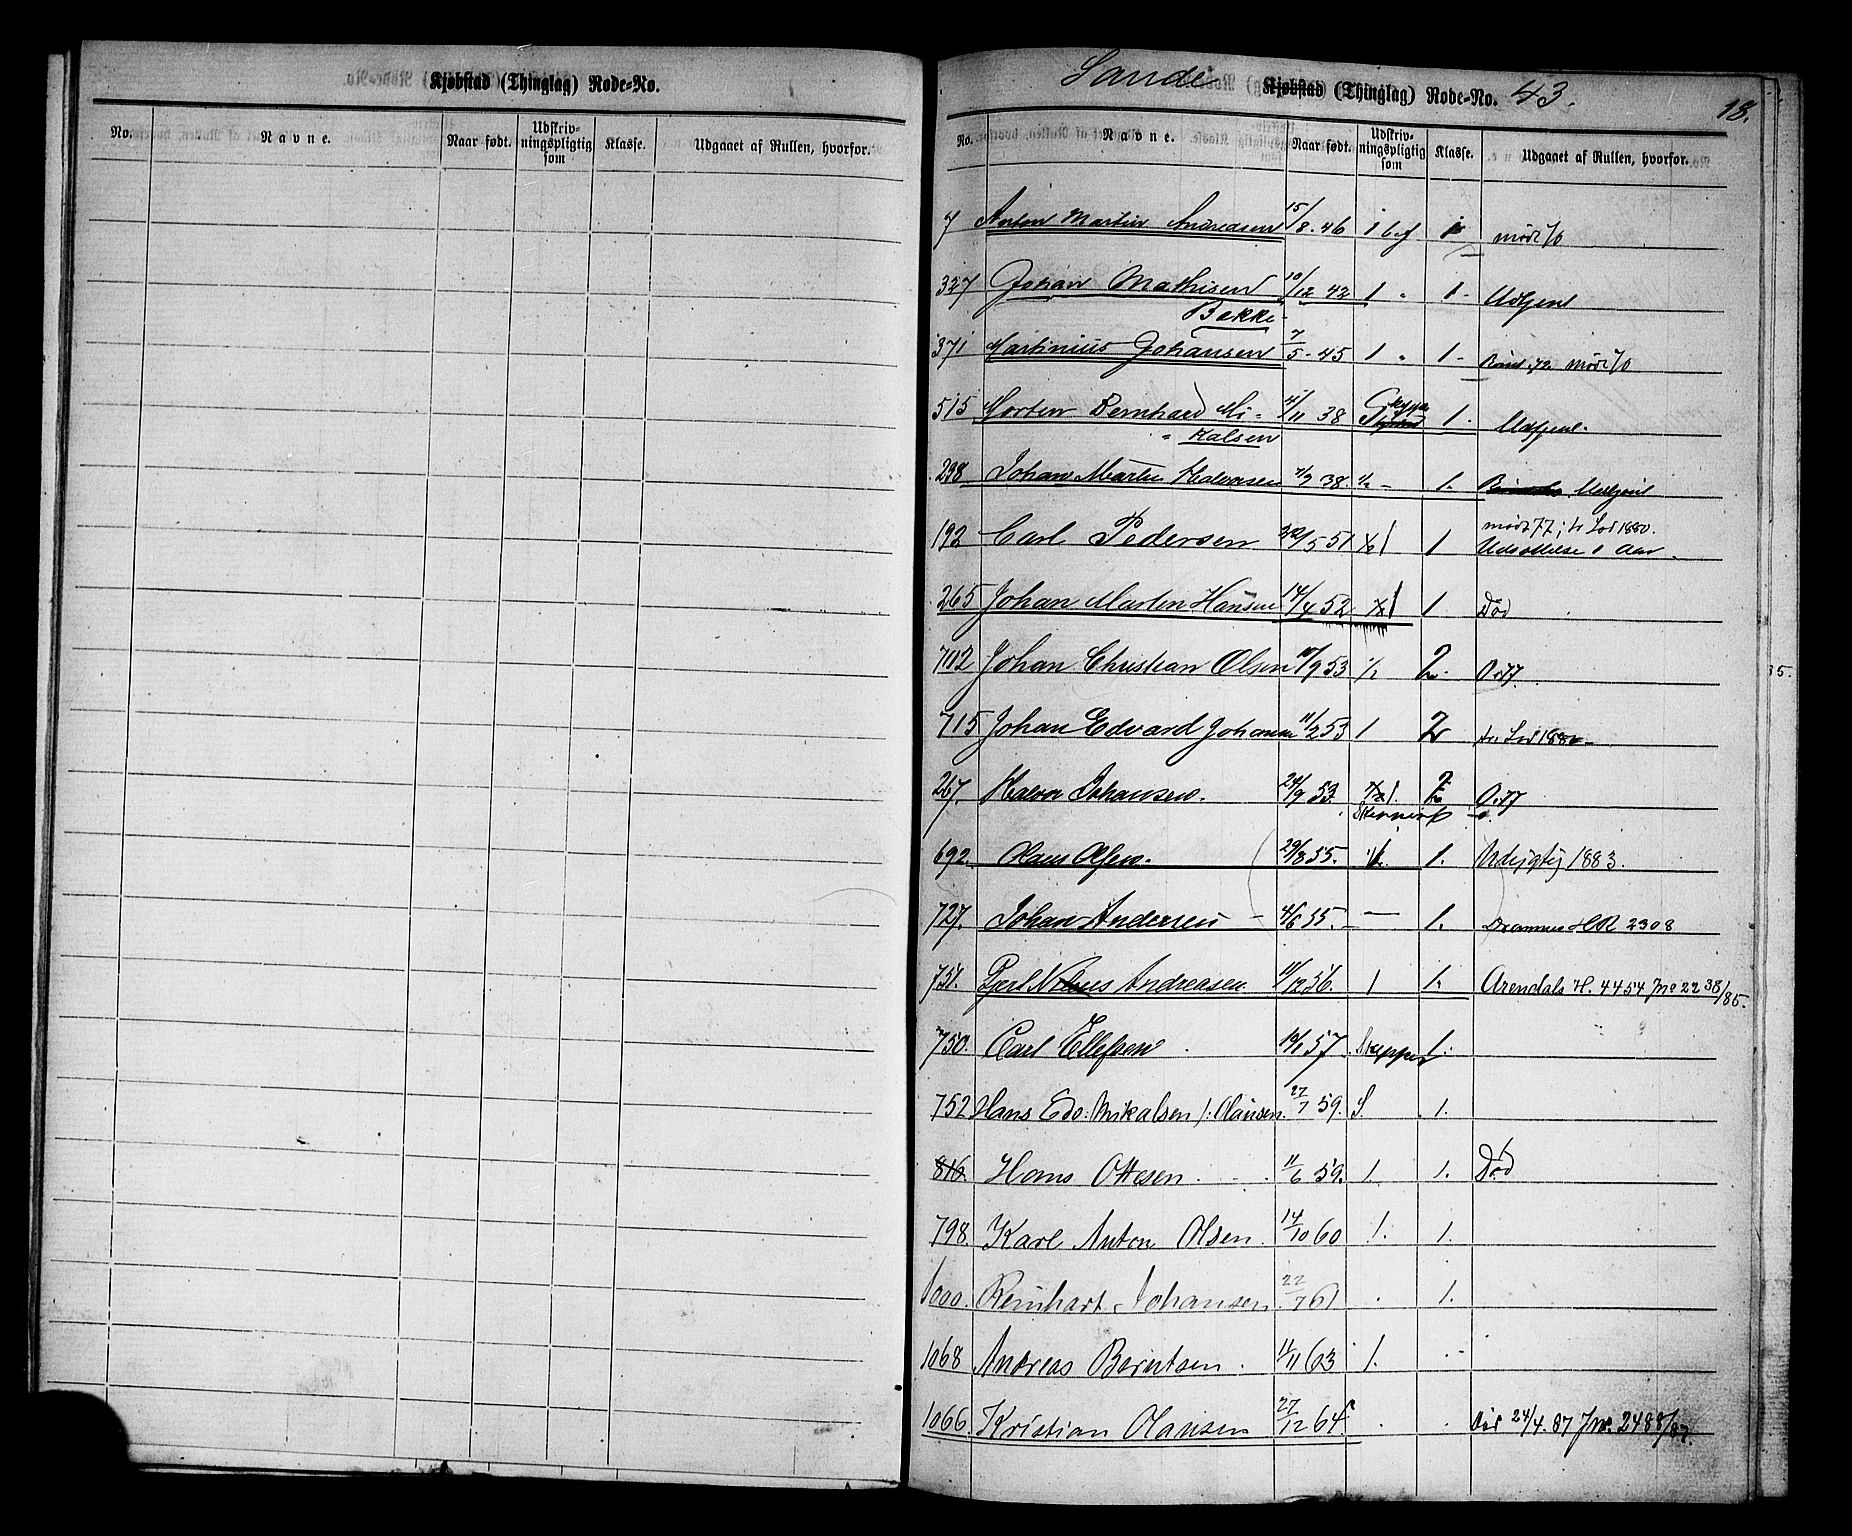 Kjøbstad (Thinglag) Rode-No.
No. Navne. Naar født. Udskrivningspligtig som Klasse. Udgaaet af Rullen, hvorfor.
Sande Kjøbstad (Thinglag) Rode-No. 43.
18.
No. Navne. Naar født. Udskrivningspligtig som Klasse. Udgaaet af Rullen, hvorfor.
7 Anton Martin Andreasen 15/8. 46 1 1 mødt 70
327 Johan Mathisen 10/12 42 1 " 1- Udtjent
Bakke
371 Martinius Johansen 7/5-45 1 " 1- 72 mødt 70
515 Morten Bernhard Mi- /11 38 1. Udtjent.
kalsen
238 Johan Martin 38. 1/2 - 1. Udtjent
192 Carl Pedersen /5 51 1 1 mødt 77; fr Lod 1880.
Udsættelse 1 Aar.
265 Johan Martin Hansen 14/4 52 1 1. Død
702 Johan Christian Olsen /9 53 1/2 2.
715 Johan Edvard Johansen 11/2 53 1 2 fr. Lod 1880
267. Halvor Johansen. 24/9 53. 1. 2
692. Olaus Olsen. 29/8 55. 1. 1. Udygtig 1883.
727. Johan Andersen - 4/6 55. — 1. Drammens HR 2308
751. Andreasen /12 56. 1 1. Arendals H. 4454 Jno 2238/85.
750. Carl Ellefsen 57 Skipper 1.
752 Hans Edv: Mikalsen /: Olausen. 27/7 59. S. 1.
816. Hans Ottesen. 11/6 59. 1. 1. Død
798. Karl Anton Olsen. 14/10 60 1. 1.
1000. Reinhart Johansen 22/7 61 . 1.
1068 Andreas Berntsen. 11/11 63 1.
1066. Kristian Olausen 27/12 64 . . Død 24/4. 87 Jno. 2488/87.
35.